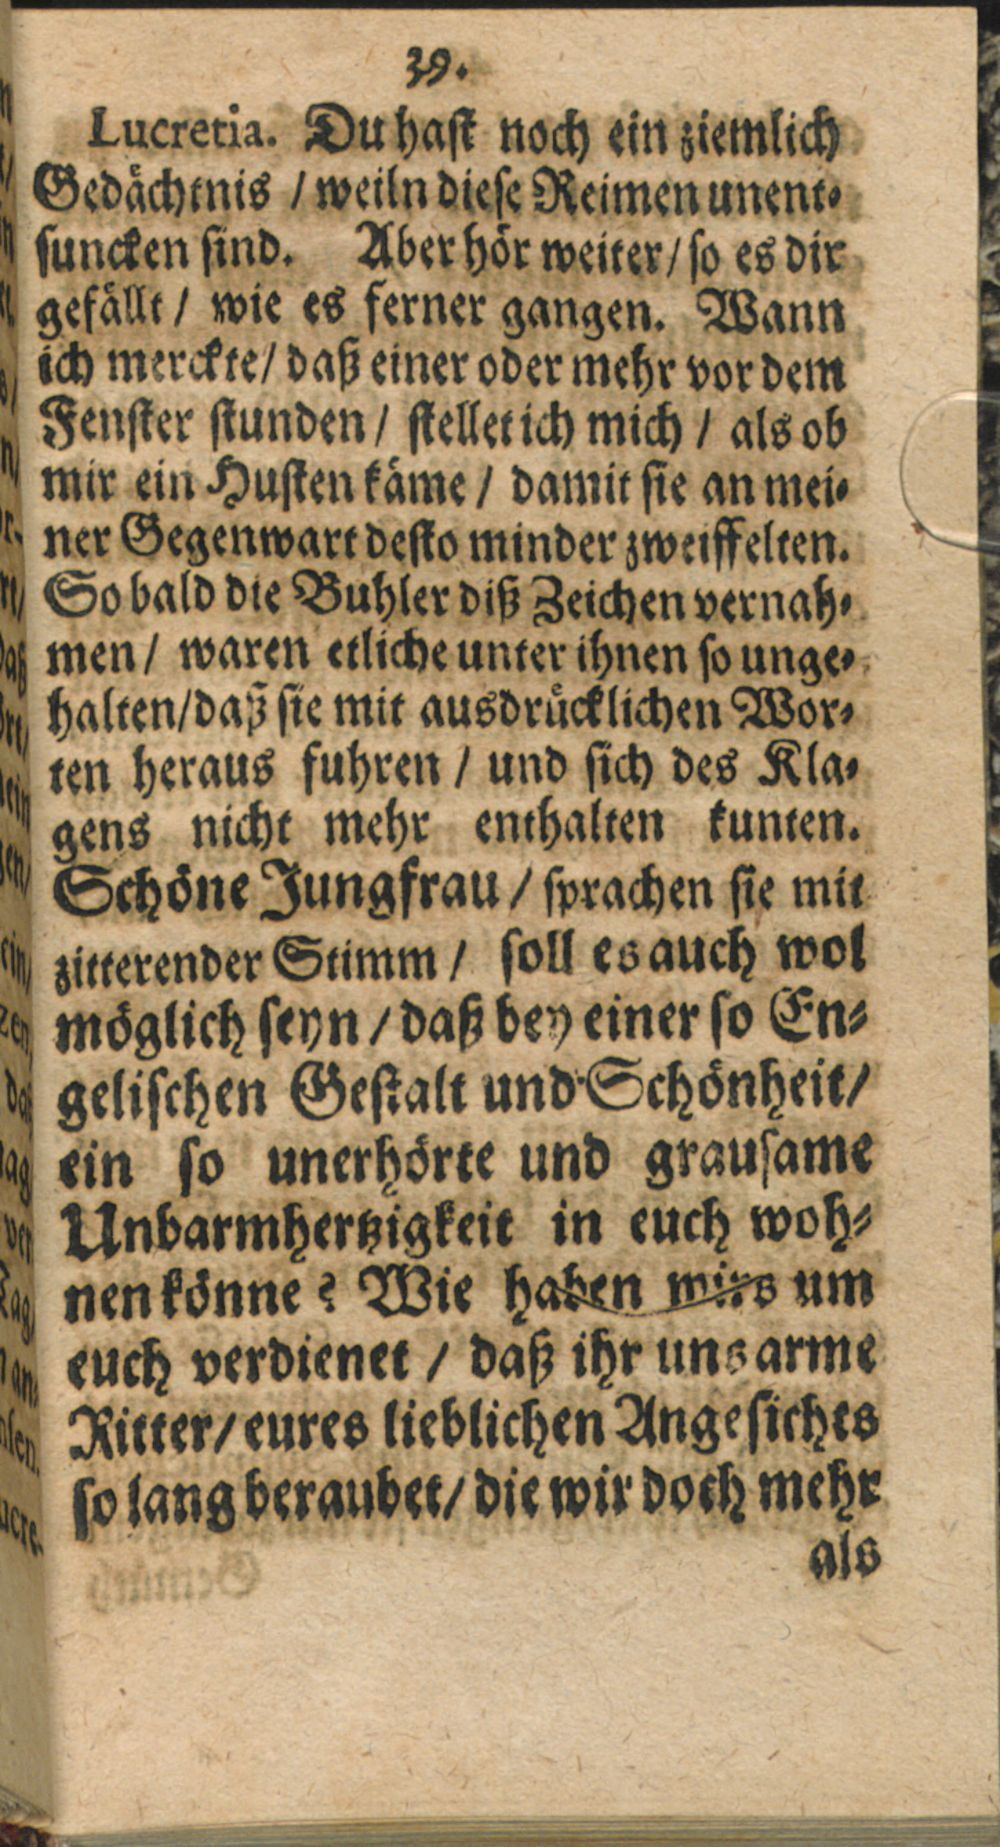 39.
Lucretia. Du hast noch ein ziemlich
Gedächtnis / weiln diese Reimen unent-
suncken sind. Aber hör weiter / so es dir
gefällt / wie es ferner gangen. Wann
ich merckte / daß einer oder mehr vor dem
Fenster stunden / stellet ich mich / als ob
mir ein Husten käme / damit sie an mei-
ner Gegenwart desto minder zweiffelten.
So bald die Buhler diß Zeichen vernah-
men / waren etliche unter ihnen so unge-
halten / daß sie mit ausdrücklichen Wor-
ten heraus fuhren / und sich des Kla-
gens nicht mehr enthalten kunten.
Schöne Jungfrau / sprachen sie mit
zitterender Stimm / soll es auch wol
möglich seyn / daß bey einer so En-
gelischen Gestalt und Schönheit /
ein so unerhörte und grausame
Unbarmhertzigkeit in euch woh-
nen könne? Wie haben wirs um
euch verdienet / daß ihr uns arme
Ritter / eures lieblichen Angesichts
so lang beraubet / die wir doch mehr
als